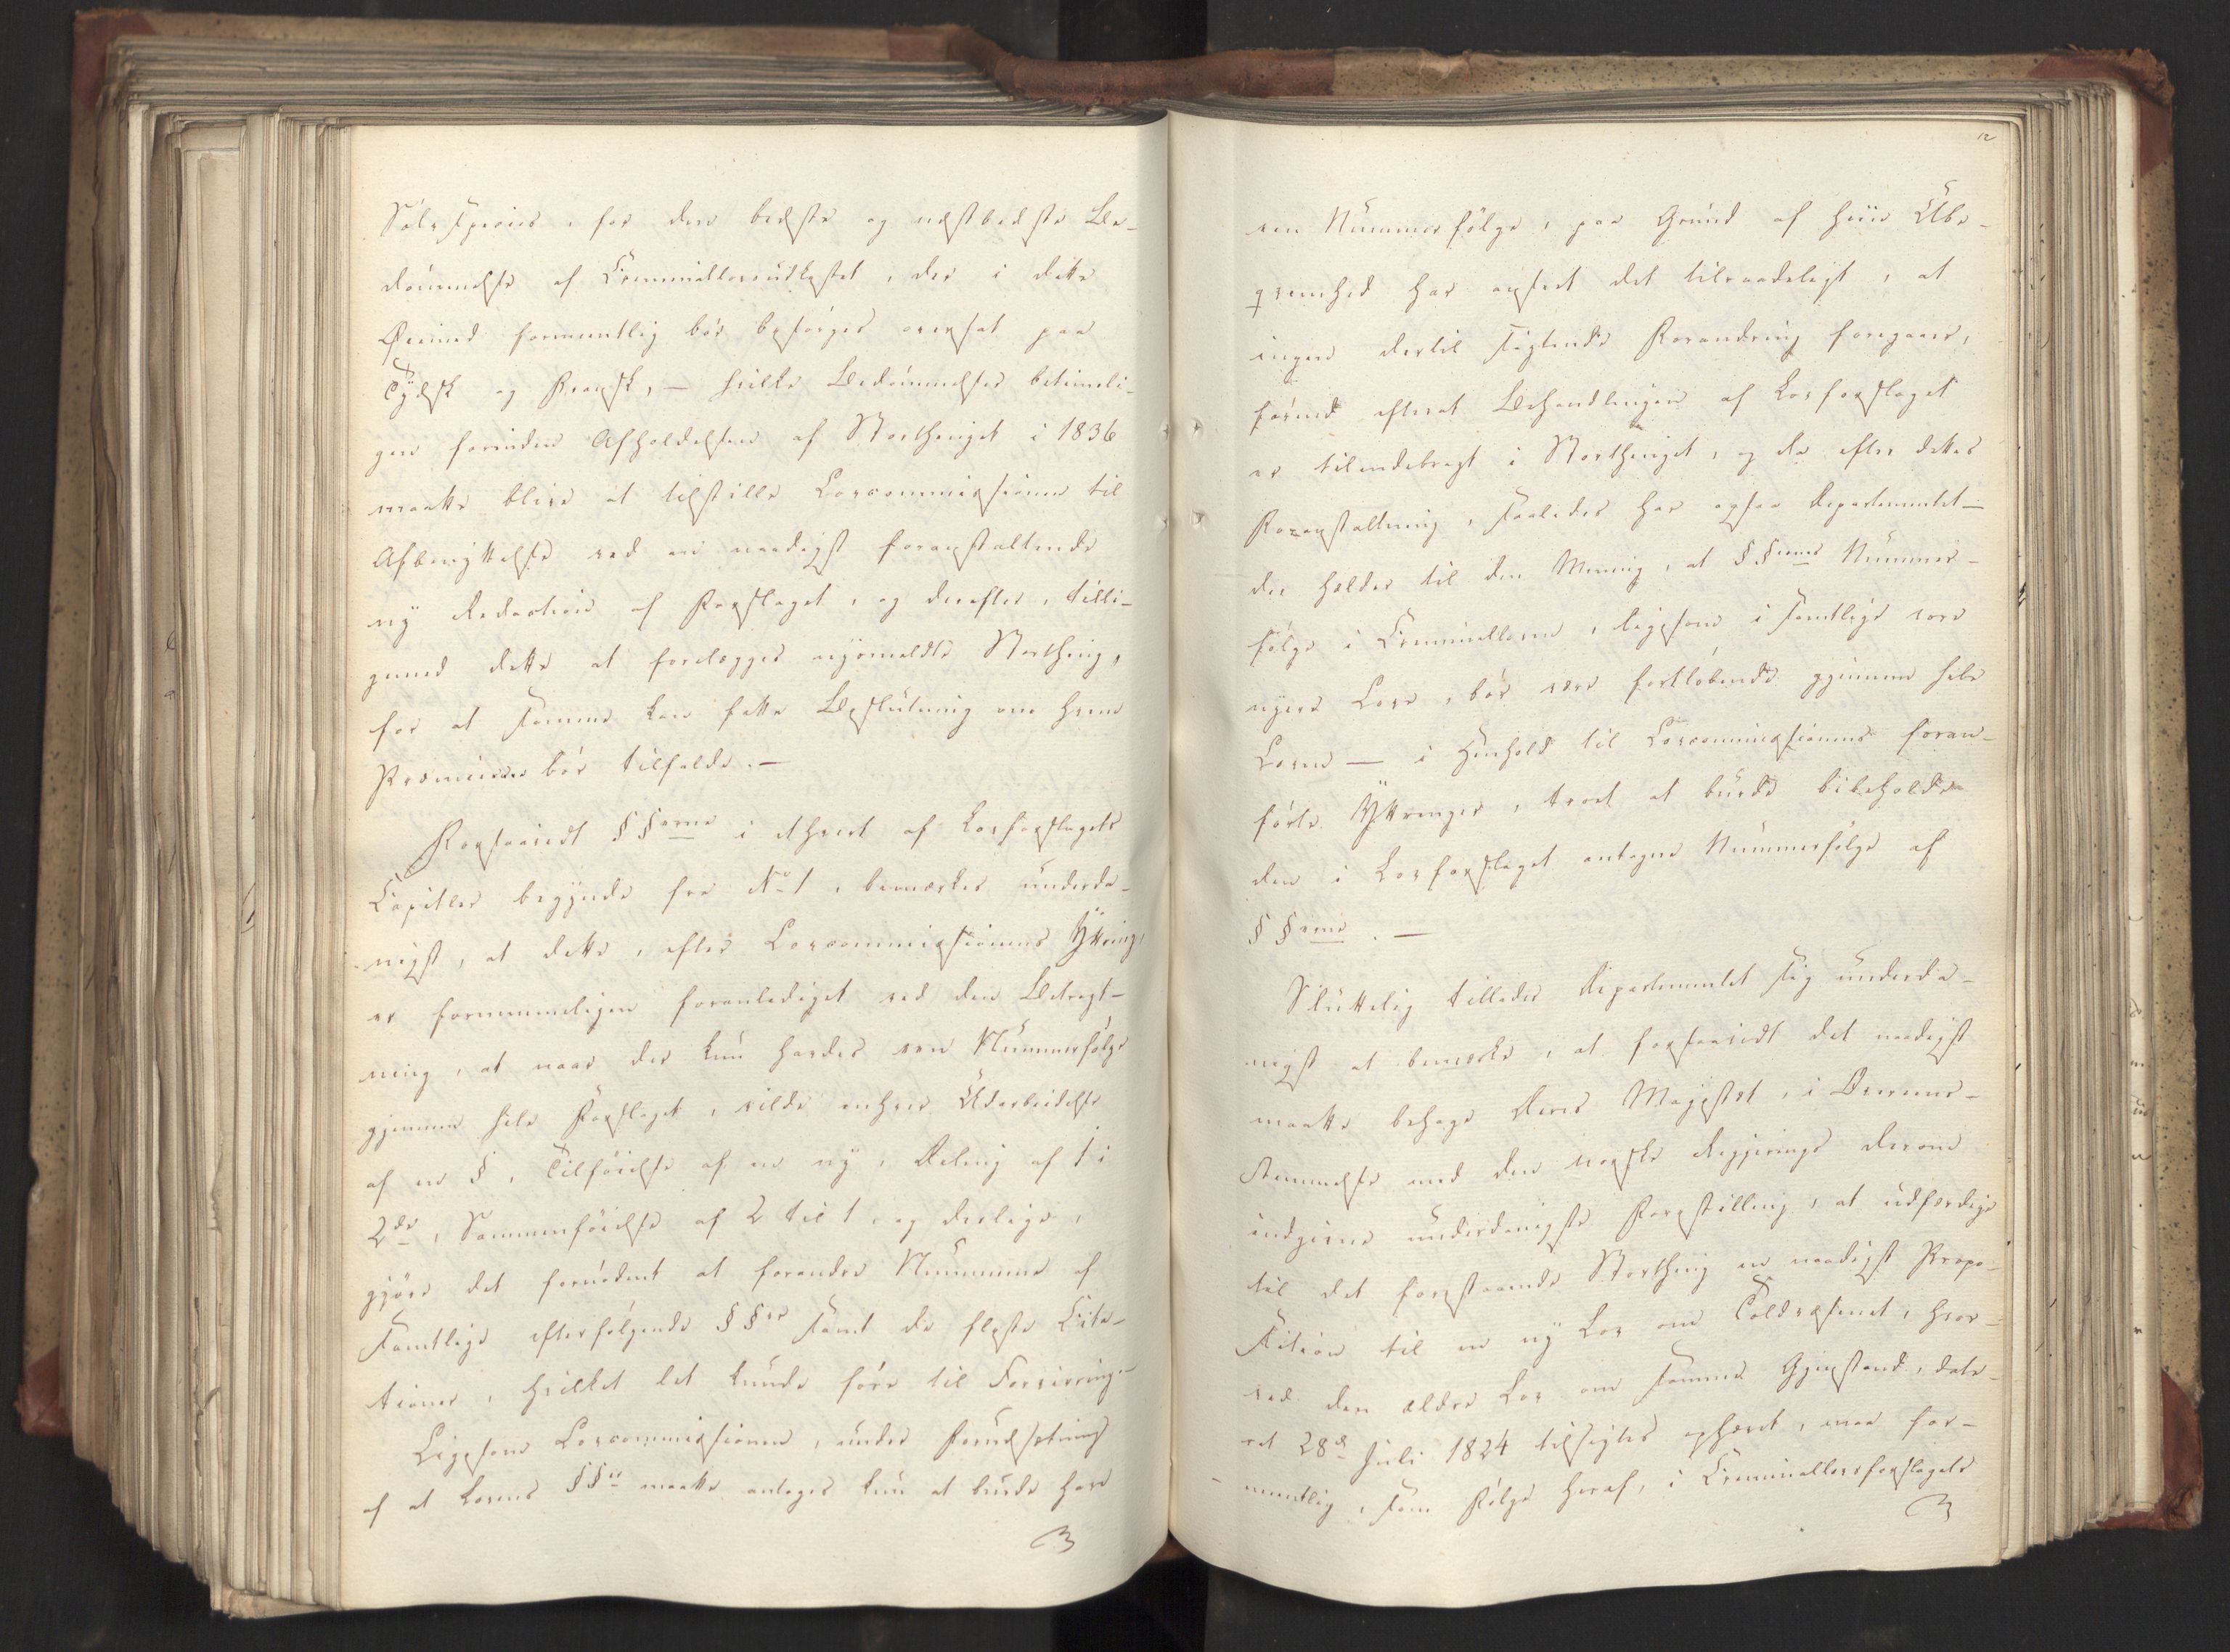 Sølv Species, for den bedste og næstbedste Be-
dømmelse af Criminallovudkastet, der i dette
Øiemed formeentlig bør besørges oversat paa
Tydsk og Fransk, — hvilke Bedømmelser betimeli-
gen forinden Afholdelsen af Storthinget i 1836
maatte blive at tilstille Lovcommissionen til
Afbenyttelse ved en naadigst foranstaltende
ny Redaction af Forslaget, og derefter, tilli-
gemed dette at forelægges nysmeldte Storthing,
for at samme kan fatte Beslutning om hvem
Præmierne bør tilfalde. —
Forsaavidt §§erne i ethvert af Lovforslagets
Capitler begynde fra No 1, bemærkes underda-
nigst, at dette, efter Lovcommissionens Yttring,
er fornemmeligen foranlediget ved den Betragt-
ning, at naar der kun havdes een Nummerfølge
gjennem hele Forslaget, vilde enhver Udarbeidelse
af en §, Tilføielse af en ny, Deling af 1 i
2de, Sammenføielse af 2 til 1, og deslige,
gjøre det fornødent at forandre Nummerne af
samtlige efterfølgende §§er samt de fleste Cita-
tioner, hvilket let kunde føre til Forvirring.
Ligesom Lovcommissionen, under Forudsætning
af at Lovens §§er maatte antages kun at burde have
12
een Nummerfølge, paa Grund af hiin Ube-
qvemhed har anseet det tilraadeligt, at
ingen dertil sigtende Forandring foregaaer,
førend efterat Behandlingen af Lovforslaget
er tilendebragt i Storthinget, og da efter dettes
Foranstaltning, saaledes har ogsaa Departementet —
der holder til den Mening, at §§ernes Nummer-
følge i Criminalloven, ligesom i samtlige vore
nyere Love, bør være fortløbende gjennem hele
Loven — i Henhold til Lovcommissionens foran-
førte Yttringer, troet at burde bibeholde
den i Lovforslaget antagne Nummerfølge af
§§erne. —
Sluttelig tillader Departementet sig underda-
nigst at bemærke, at forsaavidt det naadigst
maatte behage Deres Majestæt, i Overeens-
stemmelse med den norske Regjerings derom
indgivne underdanigste Forestilling, at udfærdige
til det forestaaende Storthing en naadigst Propo-
sition til en ny Lov om Toldvæsenet, hvor-
ved den ældre Lov om samme Gjenstand, date-
ret 28d Juli 1824 tilsigtes ophævet, maa for-
mentlig, som Følge heraf, i Criminallovsforslagets